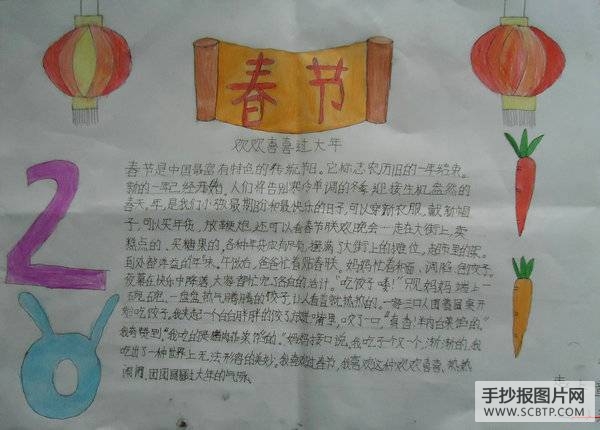 春节
欢欢喜喜过大年
春节是中国最富有特色的传统节日。它标志农历旧的一年结束。
新的一年已经开始,人们将告别寒冷单调的冬季迎接生机盎然的
春天,年,是我们小孩最期盼和最快乐的日子,可以穿新衣服。戴新帽
子,可以买年货,放鞭炮,还可以看春节联欢晚会一走在大街上,卖
糕点的、买糖果的。各种年货应有尽有,摆满了大街上的摊位,
到处都洋溢的年味。午饭后,爸爸忙着贴春联。妈妈忙着和面、调馅、包饺子。
夜幕在快乐中降落,大家都忙完了各自的活计。"吃饺子喽!"只见妈妈端上一
一盘盘热气腾腾的饺子,让人看着就热热的。一家三口人围着圆桌开
始吃饺子。我夹起一个白白胖胖的饺子放进嘴里,咬了一口,"真香!
"妈妈接口说,我吃了一个又一个,渐渐的,我
吃出了一种世界上无法形容的美妙。我喜欢过春节,我喜欢这种欢欢喜喜,热热
闹闹,团团圆圆过大年的气氛。
20
手抄报图片网
WWW.SCBTP.COM